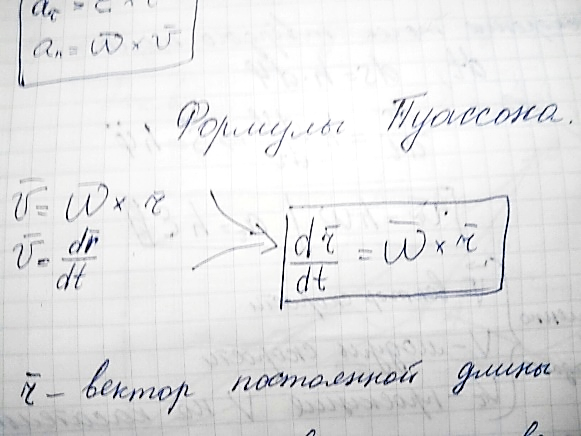 a̅τ = ε̅ × r̅
a̅n = ω̅ × v̅
Формулы Пуассона.
v̅ = ω̅ × r̅
v̅ = dr̅/dt
dr̅/dt = ω̅ × r̅
r̅ – вектор постоянной длины